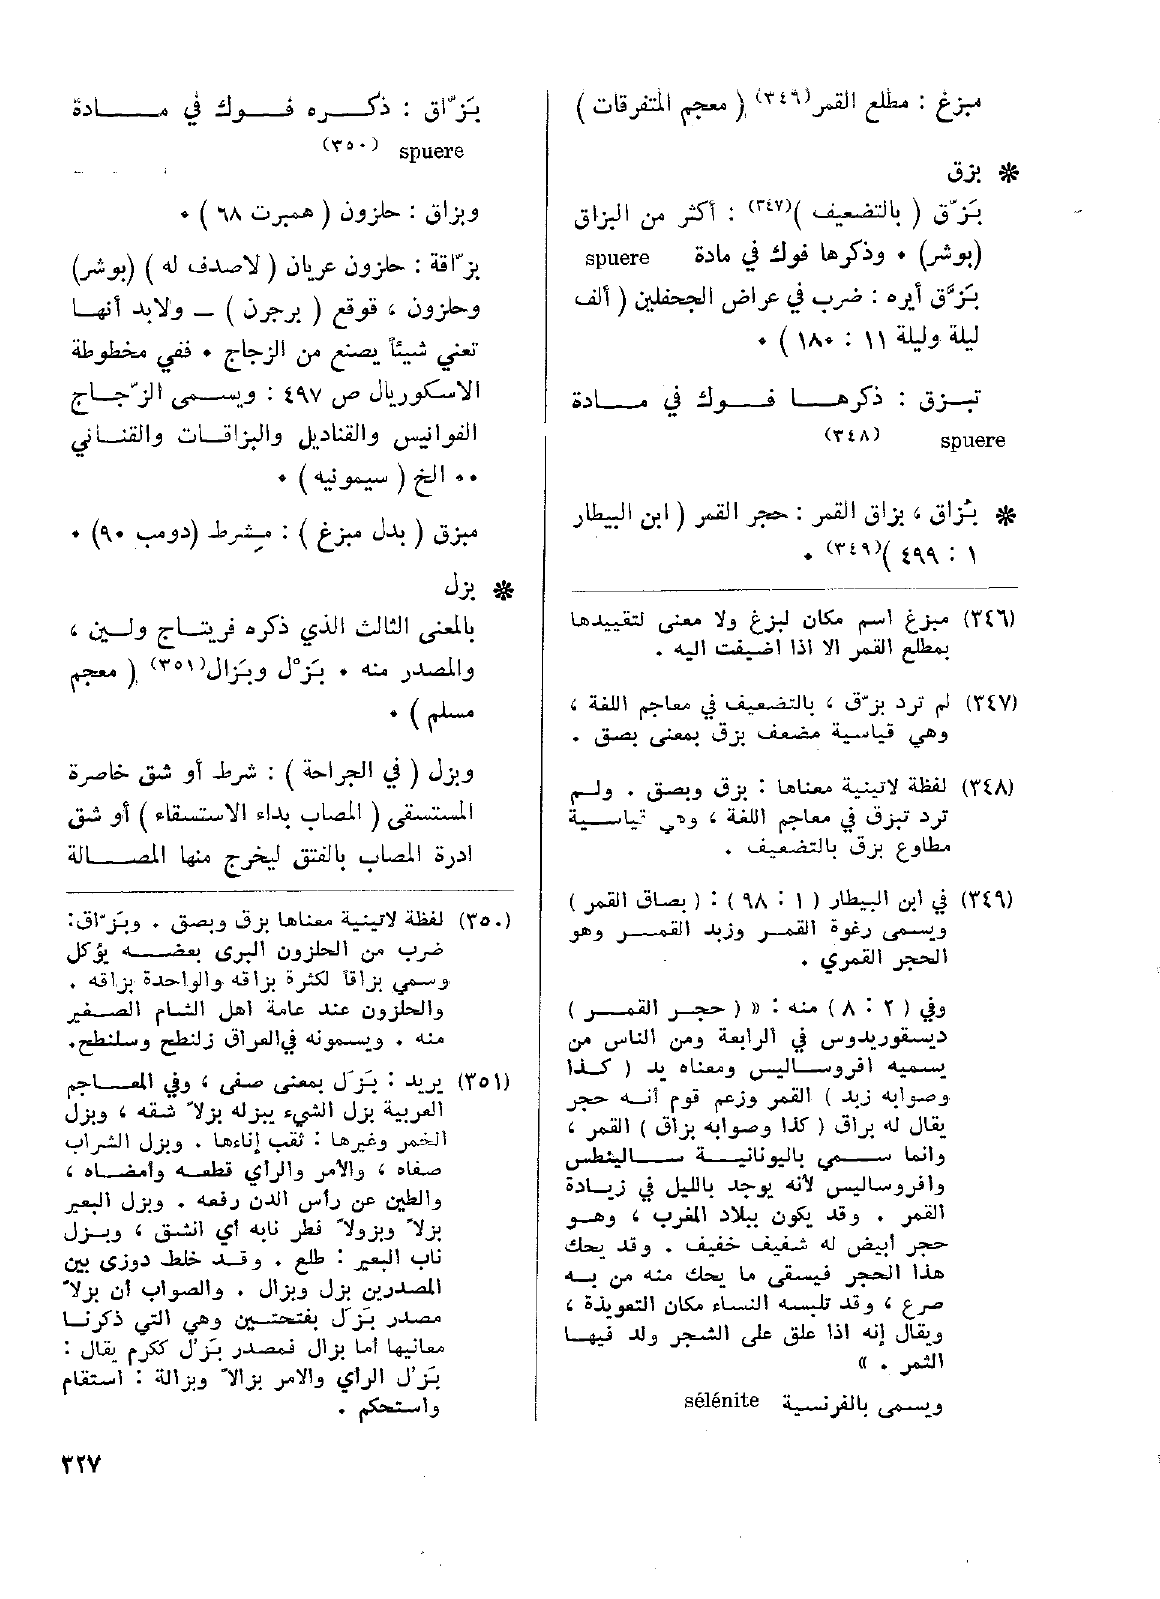 مبزغ : مطلع القمر(٣٤٦) ( معجم المتفرقات )
❋ بزق
بَزّق ( بالتضعيف )(٣٤٧) : أكثر من البزاق
(بوشر) ٠ وذكرها فوك في مادة spuere
بَزّق أيره : ضرب في عراض الجحفلين ( ألف
ليلة وليلة ١١ : ١٨٠ ) ٠
تبزق : ذكرها فوك في مادة
spuere (٣٤٨)
❋ بُزاق ، بزاق القمر : حجر القمر ( ابن البيطار
١ : ٤٩٩ )(٣٤٩) ٠
(٣٤٦) مبزغ اسم مكان لبزغ ولا معنى لتقييدها
بمطلع القمر الا اذا اضيفت اليه .
(٣٤٧) لم ترد بزّق ، بالتضعيف في معاجم اللغة ،
وهي قياسية مضعف بزق بمعنى بصق .
(٣٤٨) لفظة لاتينية معناها : بزق وبصق . ولم
ترد تبزق في معاجم اللغة ، وهي قياسية
مطاوع بزق بالتضعيف .
(٣٤٩) في ابن البيطار ( ١ : ٩٨ ) : ( بصاق القمر )
ويسمى رغوة القمر وزبد القمر وهو
الحجر القمري .
وفي ( ٢ : ٨ ) منه : « ( حجر القمر )
ديسقوريدوس في الرابعة ومن الناس من
يسميه افروساليس ومعناه يد ( كذا
وصوابه زبد ) القمر وزعم قوم أنه حجر
يقال له براق ( كذا وصوابه بزاق ) القمر ،
وانما سمي باليونانية سالينطس
وافروساليس لأنه يوجد بالليل في زيادة
القمر . وقد يكون ببلاد المغرب ، وهو
حجر أبيض له شفيف خفيف . وقد يحك
هذا الحجر فيسقى ما يحك منه من به
صرع ، وقد تلبسه النساء مكان التعويذة ،
ويقال إنه اذا علق على الشجر ولد فيها
الثمر . »
ويسمى بالفرنسية sélénite
بَزّاق : ذكره فوك في مادة
spuere (٣٥٠)
وبزاق : حلزون ( همبرت ٦٨ ) ٠
بزّاقة : حلزون عريان ( لاصدف له ) (بوشر)
وحلزون ، قوقع ( برجرن ) — ولابد أنها
تعني شيئاً يصنع من الزجاج ٠ ففي مخطوطة
الاسكوريال ص ٤٩٧ : ويسمى الزّجاج
الفوانيس والقناديل والبزاقات والقناني
٠٠ الخ ( سيمونيه ) ٠
مبزق ( بدل مبزغ ) : مِشرط (دومب ٩٠) ٠
❋ بزل
بالمعنى الثالث الذي ذكره فريتاج ولين ،
والمصدر منه ٠ بَزْل وبَزال(٣٥١) ( معجم
مسلم ) ٠
وبزل ( في الجراحة ) : شرط أو شق خاصرة
المستسقى ( المصاب بداء الاستسقاء ) أو شق
ادرة المصاب بالفتق ليخرج منها المصالة
(٣٥٠) لفظة لاتينية معناها بزق وبصق . وبَزّاق:
ضرب من الحلزون البرى بعضه يؤكل
وسمي بزاقاً لكثرة بزاقه والواحدة بزاقه .
والحلزون عند عامة اهل الشام الصغير
منه . ويسمونه في العراق زلنطح وسلنطح.
(٣٥١) يريد : بَزَل بمعنى صفى ، وفي المعاجم
العربية بزل الشيء يبزله بزلاً شقه ، وبزل
الخمر وغيرها : ثقب إناءها . وبزل الشراب
صفاه ، والامر والرأي قطعه وامضاه ،
والطين عن رأس الدن رفعه . وبزل البعير
بزلاً وبزولاً فطر نابه أي انشق ، وبزل
ناب البعير : طلع . وقد خلط دوزى بين
المصدرين بزل وبزال . والصواب ان بزلاً
مصدر بَزَل بفتحتين وهي التي ذكرنا
معانيها أما بزال فمصدر بَزُل ككرم يقال :
بَزُل الرأي والامر بزالاً وبزالة : استقام
واستحكم .
٣٢٧